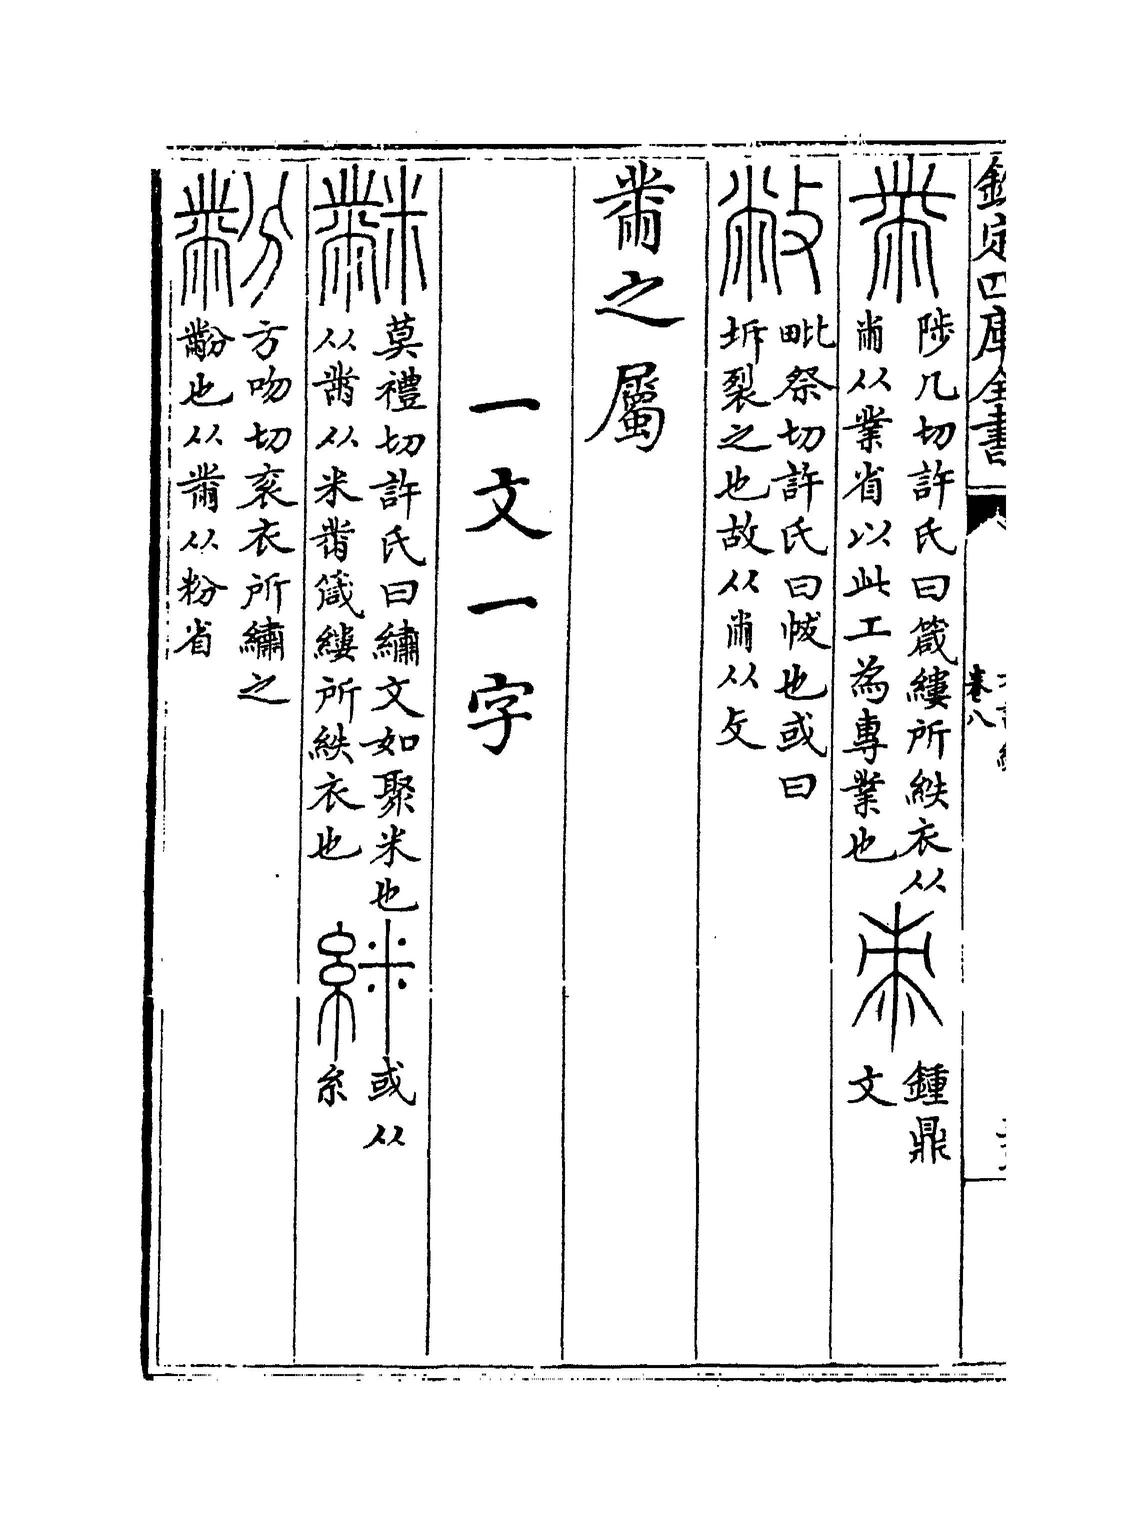 欽定四庫全書
卷八
黹
陟几切許氏曰箴縷所紩衣从
㡀从業省以此工為專業也
鍾鼎
文
敝
毗祭切許氏曰帗也或曰
坼裂之也故从㡀从攴
黹之屬
一文一字
莫禮切許氏曰繡文如聚米也
从黹从米黹箴縷所紩衣也
或从
糸
黺
方吻切衮衣所繡之
黺也从黹从粉省